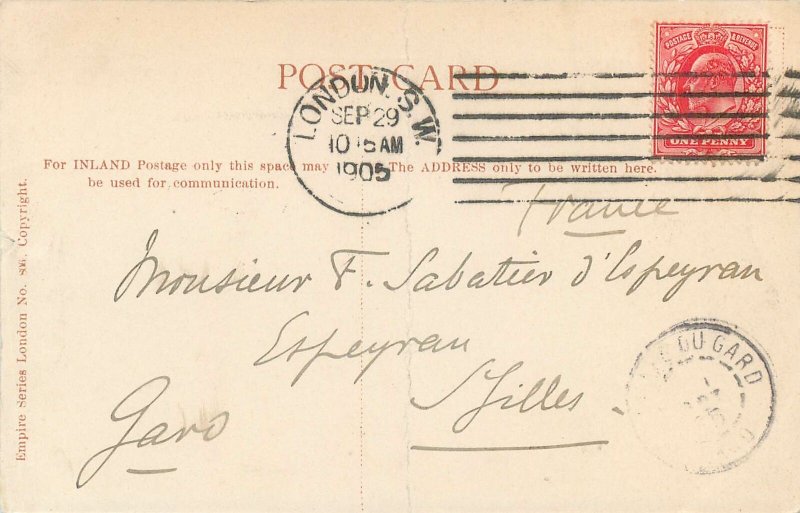 POST CARD
POSTAGE & REVENUE
ONE PENNY
LONDON. S.W.
SEP 29
10 15 AM
1905
For INLAND Postage only this space may
be used for communication.
The ADDRESS only to be written here.
France
Monsieur F. Sabatier d'Espeyran
Espeyran
St Gilles
Gard
DU GARD
Empire Series London No. Copyright.